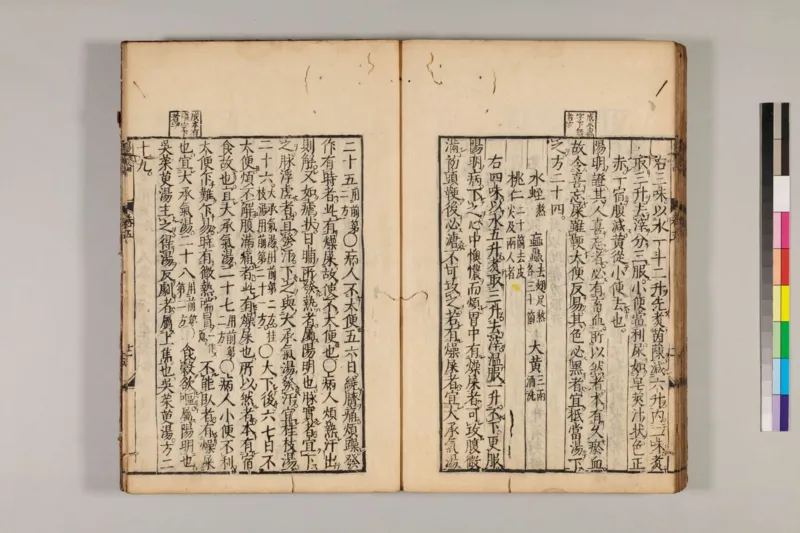 右三味以水一斗二升先煮茵陳減六升內二味煮
取三升去滓分三服小便當利尿如皂莢汁狀色正
赤一宿腹減黃從小便去也
陽明證其人喜忘者必有畜血所以然者本有久瘀血
故令喜忘屎雖鞕大便反易其色必黑者宜抵當湯下
之方二十四
水蛭熬 蝱蟲去翅足熬各三十箇 大黃三兩酒洗
桃仁二十箇去皮尖及兩人者
右四味以水五升煮取三升去滓溫服一升不下更服
陽明病下之心中懊憹而煩胃中有燥屎者可攻腹微
滿初頭鞕後必溏不可攻之若有燥屎者宜大承氣湯
二十五用前第二方○病人不大便五六日繞臍痛煩躁發
作有時者此有燥屎故使不大便也○病人煩熱汗出
則解又如瘧狀日晡所發熱者屬陽明也脉實者宜下
之脉浮虛者宜發汗下之與大承氣湯發汗宜桂枝湯
二十六大承氣湯用前第二方桂枝湯用前第十二方○大下後六七日不
大便煩不解腹滿痛者此有燥屎也所以然者本有宿
食故也宜大承氣湯二十七用前第二方○病人小便不利
大便乍難乍易時有微熱喘冒不能臥者有燥屎
也宜大承氣湯二十八用前第二方食穀欲嘔屬陽明也
吳茱萸湯主之得湯反劇者屬上焦也吳茱萸湯方二
十九